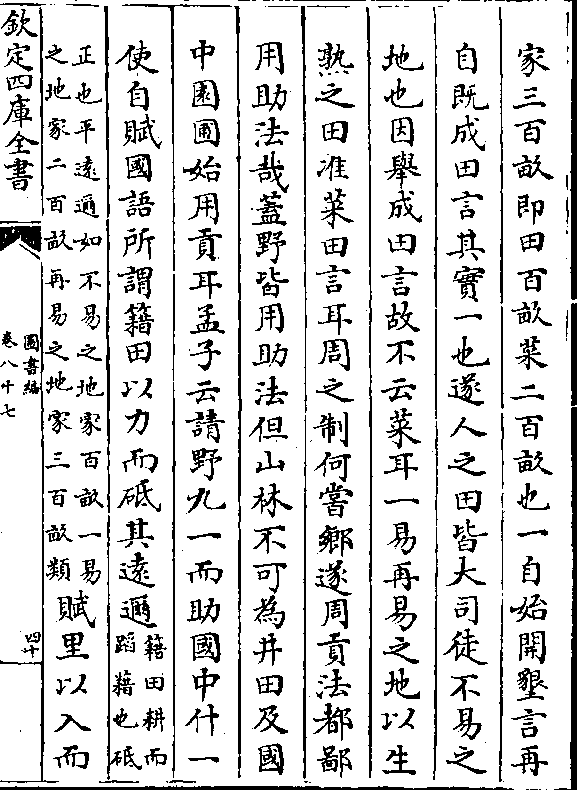 家三百畝即田百畝菜二百畝也一自始開墾言再
自既成田言其實一也遂人之田皆大司徒不易之
地也因舉成田言故不云菜耳一易再易之地以生
熟之田准菜田言耳周之制何嘗鄉遂周貢法都鄙
用助法哉蓋野皆用助法但山林不可為井田及國
中園圃始用貢耳孟子云請野九一而助國中什一
使自賦國語所謂籍田以力而砥其遠邇籍田耕而
蹈籍也砥
正也平遠邇如不易之地家百畝一易
之地家二百畝再易之地家三百畝類賦里以入而
欽定四庫全書
圖書編
卷八十七
四十